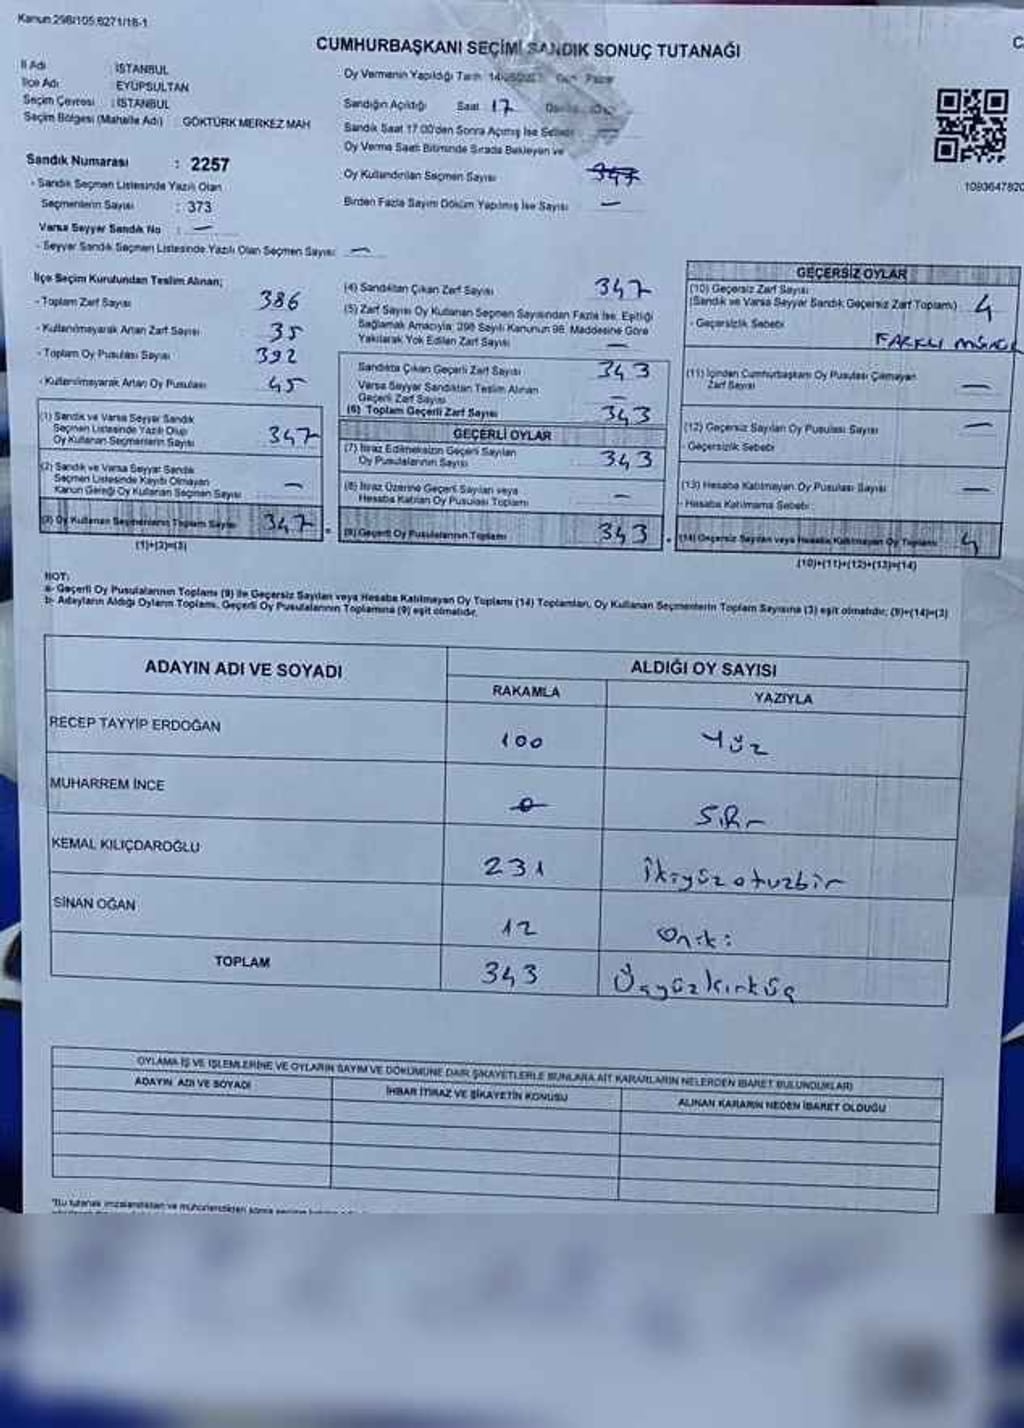 Kanun:298/105,6271/18-1
CUMHURBAŞKANI SEÇİMİ SANDIK SONUÇ TUTANAĞI
İl Adı : İSTANBUL
İlçe Adı : EYÜPSULTAN
Seçim Çevresi : İSTANBUL
Seçim Bölgesi (Mahalle Adı) : GÖKTÜRK MERKEZ MAH
Sandık Numarası : 2257
- Sandık Seçmen Listesinde Yazılı Olan
Seçmenlerin Sayısı : 373
Varsa Seyyar Sandık No : —
- Seyyar Sandık Seçmen Listesinde Yazılı Olan Seçmen Sayısı: —
Oy Vermenin Yapıldığı Tarih
Sandığın Açıldığı Saat 17
Sandık Saat 17:00'den Sonra Açılmış İse Sebebi
Oy Verme Saati Bitiminde Sırada Bekleyen ve
Oy Kullandırılan Seçmen Sayısı 347
Birden Fazla Sayım Döküm Yapılmış İse Sayısı —
1093647820
İlçe Seçim Kurulundan Teslim Alınan;
- Toplam Zarf Sayısı 386
- Kullanılmayarak Artan Zarf Sayısı 35
- Toplam Oy Pusulası Sayısı 392
- Kullanılmayarak Artan Oy Pusulası 45
(1) Sandık ve Varsa Seyyar Sandık
Seçmen Listesinde Yazılı Olup
Oy Kullanan Seçmenlerin Sayısı 347
(2) Sandık ve Varsa Seyyar Sandık
Seçmen Listesinde Kaydı Olmayan
Kanun Gereği Oy Kullanan Seçmen Sayısı —
(3) Oy Kullanan Seçmenlerin Toplam Sayısı 347
(1)+(2)=(3)
(4) Sandıktan Çıkan Zarf Sayısı 347
(5) Zarf Sayısı Oy Kullanan Seçmen Sayısından Fazla İse, Eşitliği
Sağlamak Amacıyla; 298 Sayılı Kanunun 98. Maddesine Göre
Yakılarak Yok Edilen Zarf Sayısı —
Sandıkta Çıkan Geçerli Zarf Sayısı 343
Varsa Seyyar Sandıktan Teslim Alınan
Geçerli Zarf Sayısı —
(6) Toplam Geçerli Zarf Sayısı 343
GEÇERLİ OYLAR
(7) İtiraz Edilmeksizin Geçerli Sayılan
Oy Pusulalarının Sayısı 343
(8) İtiraz Üzerine Geçerli Sayılan veya
Hesaba Katılan Oy Pusulası Toplamı —
(9) Geçerli Oy Pusulalarının Toplamı 343
GEÇERSİZ OYLAR
(10) Geçersiz Zarf Sayısı
(Sandık ve Varsa Seyyar Sandık Geçersiz Zarf Toplamı) 4
- Geçersizlik Sebebi
FARKLI
(11) İçinden Cumhurbaşkanı Oy Pusulası Çıkmayan
Zarf Sayısı —
(12) Geçersiz Sayılan Oy Pusulası Sayısı —
- Geçersizlik Sebebi
(13) Hesaba Katılmayan Oy Pusulası Sayısı —
- Hesaba Katılmama Sebebi
(14) Geçersiz Sayılan veya Hesaba Katılmayan Oy Toplamı 4
(10)+(11)+(12)+(13)=(14)
NOT:
a- Geçerli Oy Pusulalarının Toplamı (9) ile Geçersiz Sayılan veya Hesaba Katılmayan Oy Toplamı (14) Toplamları, Oy Kullanan Seçmenlerin Toplam Sayısına (3) eşit olmalıdır; (9)+(14)=(3)
b- Adayların Aldığı Oyların Toplamı, Geçerli Oy Pusulalarının Toplamına (9) eşit olmalıdır.
ADAYIN ADI VE SOYADI ALDIĞI OY SAYISI
RAKAMLA YAZIYLA
RECEP TAYYİP ERDOĞAN 100 Yüz
MUHARREM İNCE 0 Sıfır
KEMAL KILIÇDAROĞLU 231 İkiyüzotuzbir
SİNAN OĞAN 12 Oniki
TOPLAM 343 Üçyüzkırküç
OYLAMA İŞ VE İŞLEMLERİNE VE OYLARIN SAYIM VE DÖKÜMÜNE DAİR ŞİKAYETLERLE BUNLARA AİT KARARLARIN NELERDEN İBARET BULUNDUKLARI
ADAYIN ADI VE SOYADI İHBAR İTİRAZ VE ŞİKAYETİN KONUSU ALINAN KARARIN NEDEN İBARET OLDUĞU
*Bu tutanak imzalandıktan ve mühürlendikten sonra